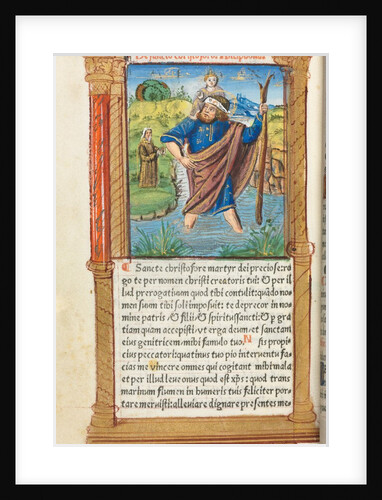 De sancto christoforo antiphona.
Sancte christofore martyr dei preciose:ro
go te per nomen christi creatoris tui: et per il
lud prerogatiuum quod tibi contulit:quādo no
men suum tibi soli imposuit: te deprecor in no
mine patris & filii & spiritussancti: & p gra
tiam quam accepisti vt erga deum/et sanctam
eius genitricem/mihi famulo tuo. N sis propi
cius peccatori:quatinus tuo pio interuentu fa
cias me vincere omnes qui cogitant mihi mala
et per illud leue onus quod est xp̄s: quod trans
marinum flumen in humeris tuis feliciter por
tare meruisti:alleuiare dignare presentes me